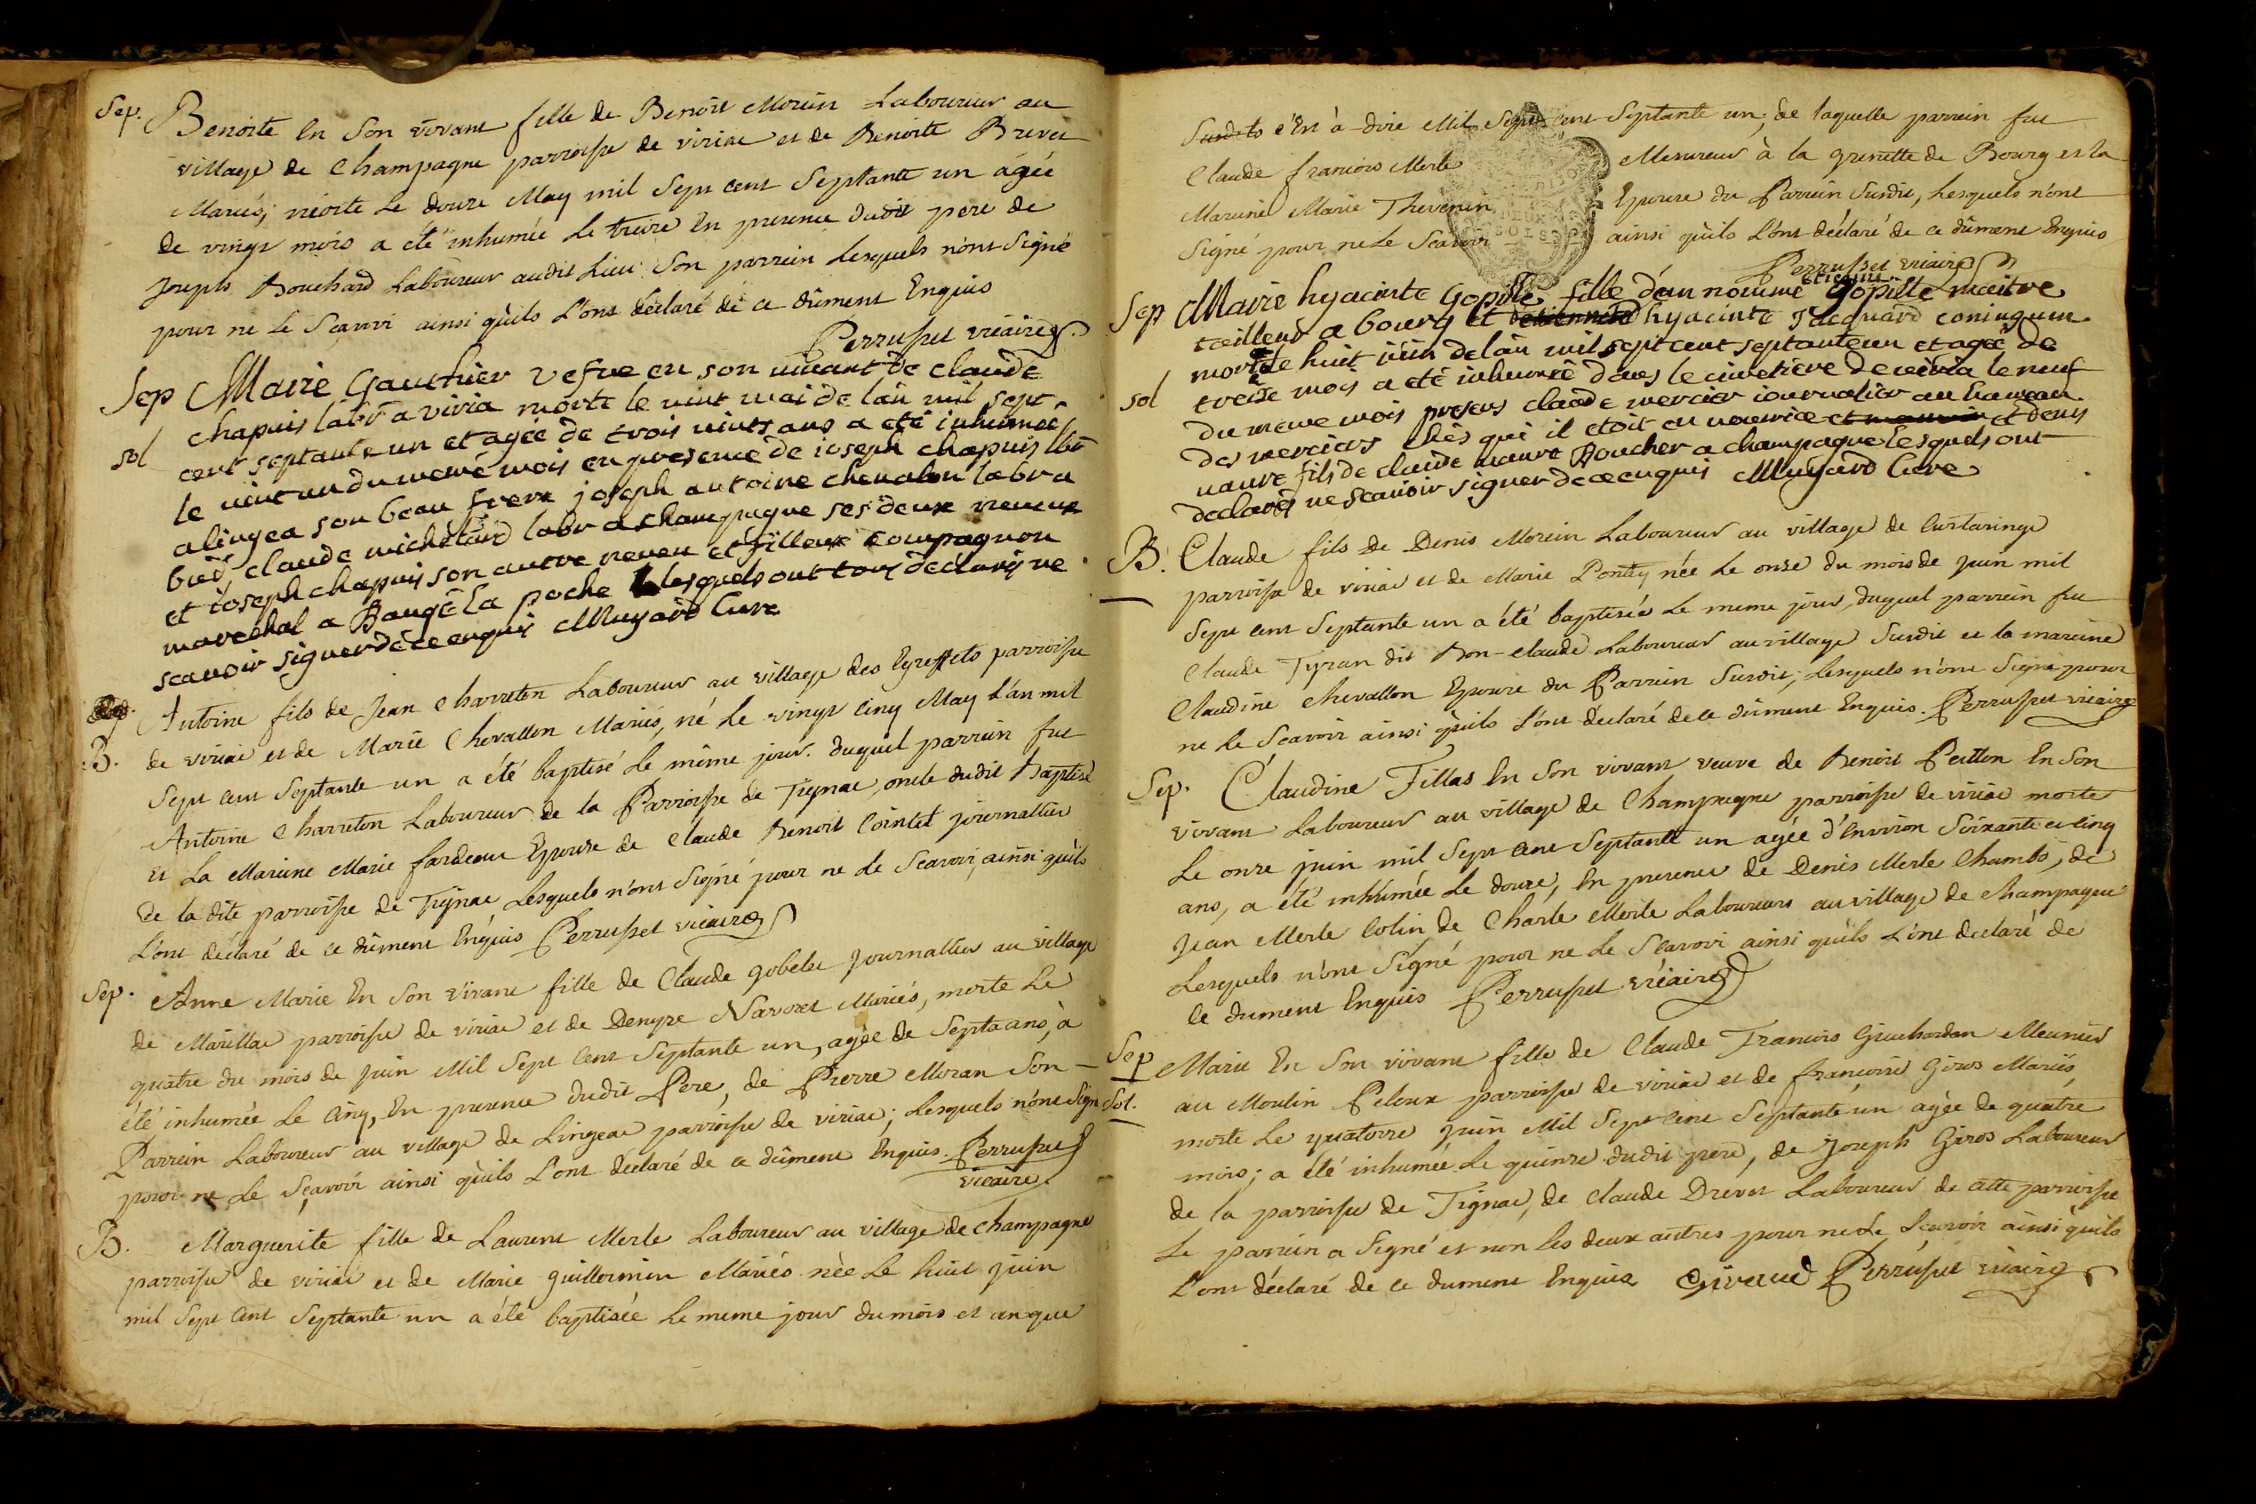 Sep. Benoite En Son vivant fille de Benoit Morin Laboureur au
village de Champagne parroisse de viriac et de Benoite Brevet
Mariés; morte Le douze May mil Sept cent Septante un âgée
de vingt mois a été inhumée Le treize En presence dudit pere de
Joseph Bouchard Laboureur audit Lieu Son parrein Lesquels n'ont Signé
pour ne Le Scavoir ainsi qu'ils L'ont déclaré de ce dûment Enquis
Perrusset vicaire
Sep Marie Gauthier vefve en son vivant de claude
sol chapuis labr a viria morte le vint mai de lan mil sept
cent septante un et agée de trois vints ans a eté inhumée
le vint un du meme mois en presence de ioseph chapuis lbr
a lingea son beau frere joseph antoine chevalon labr a
claude michelard labr a champagne ses deux neveux
et ioseph chapuis son autre neveu et filleux compagnon
marechal a Baugé la poche lesquels ont tous déclarés ne
scavoir signer de ce enquis Muyard Cure
B. Antoine fils de Jean Charreton Laboureur au village des Egreffets parroisse
de viriac et de Marie Chevallon Mariés, né Le vingt cinq May L'an mil
Sept cent Septante un a été baptisé Le même jour. duquel parrein fut
Antoine Charreton Laboureur de la Parroisse de Tignac, oncle dudit Baptisé
et La Mareine Marie fardeau Epouse de Claude Benoit Cointet journallier
De la dite parroisse de Tignac Lesquels n'ont Signé pour ne Le Scavoir, ainsi qu'ils
L'ont déclaré de ce dûment Enquis Perrusset vicaire
Sep. Anne Marie En Son vivant fille de Claude gobelet Journallier au village
de Marillac parroisse de viriac et de Denyse Navoret Mariés, morte Le
quatre du mois de juin Mil Sept Cent Septante un, agée de Sept ans, à
été inhumée Le Cinq, En presence dudit Pere, de Pierre Moran Son
Parrein Laboureur au village de Lingeac parroisse de viriac; Lesquels n'ont Signé
pour ne Le Sçavoir ainsi qu'ils L'ont déclaré de ce dûment Enquis. Perrusset
vicaire
B. Marguerite fille de Laurent Merle Laboureur au village de Champagne
parroisse de viriac et de Marie guillermin Mariés. née Le huit juin
mil Sept Cent Septante un a été baptisée Le meme jour du mois et an que
Susdits c'Est à-dire Mil Sept Cent Septante un, de laquelle parrein fut
Claude francois Merle Mesureur à la grenette de Bourg et la
Mareine Marie Thevenin Epouse du Parrein Susdit, Lesquels n'ont
Signé pour ne Le Scavoir ainsi qu'ils L'ont déclaré de ce dûment Enquis
DEUX
SOLS
Perrusset vicaire
Sep Marie hyacinte Gopille fille d'un nommé etienne Gopille maitre
tailleur a bourg et hyacinte Jacquard coniugum
sol morte le huit iuin de lan mil sept cent septante un et agée de
treize mois a eté inhumée dans le cimetiere de viria le neuf
du meme mois presens claude mercier iournalier au hameau
des merciers chés qui il etoit en nourrice et denis
nauvre fils de claude nauvre Boucher a champagne lesquels ont
declarés ne scavoir signer de ce enquis Muyard Cure
B. Claude fils de Denis Morein Laboureur au village de Curtaringe
parroisse de viriac et de Marie Ponthy née Le onze du mois de juin mil
Sept Cent Septante un a été baptisée Le meme jour, duquel parrein fut
Claude Tyran dit Bon-claude Laboureur au village Susdit et la mareine
Claudine Chevallon Epouse du Parrein Susdit; Lesquels n'ont Signé pour
ne Le Scavoir ainsi qu'ils L'ont déclaré de ce dûment Enquis. Perrusset vicaire
Sep. Claudine Fillas En Son vivant veuve de Benoit Peillon En Son
vivant Laboureur au village de Champagne parroisse de viriac morte
Le onze juin mil Sept Cent Septante un agée d'Environ Soixante et cinq
ans, a été inhumée Le douze, En presence de Denis Merle Chambs, de
Jean Merle Colin de Charle Merle Laboureurs au village de Champagne
Lesquels n'ont Signé pour ne Le Scavoir ainsi qu'ils L'ont déclaré de
ce dument Enquis Perrusset vicaire
Sep Marie En Son vivant fille de Claude Francois Guichardan Meunier
au Moulin Peloux parroisse de viriac et de francoise Giros Mariés,
Sol. morte Le quatorze juin Mil Sept Cent Septante un agée de quatre
mois; a été inhumée Le quinze dudit pere, de Joseph Giros Laboureur
de la parroisse de Tignac, de Claude Drevet Laboureur de cette parroisse
Le parrein a Signé et non les deux autres pour ne Le Scavoir ainsi qu'ils
L'ont déclaré de ce dument Enquis Giraud Perrusset vicaire